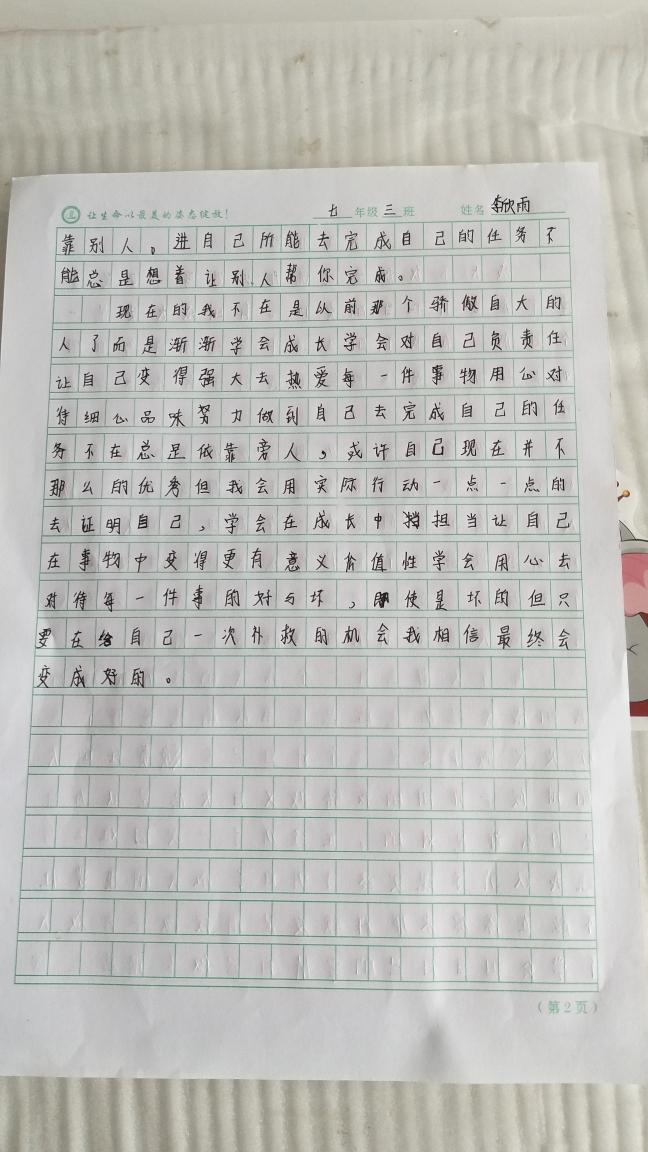 让生命以最美的姿态绽放！ 七 年级 三 班 姓名 李欣雨
靠别人。进自己所能去完成自己的任务不
能总是想着让别人帮你完成。
现在的我不在是以前那个骄傲自大的
人了而是渐渐学会成长学会对自己负责任
让自己变得强大去热爱每一件事物用心对
待细心品味努力做到自己去完成自己的任
务不在总是依靠旁人，或许自己现在并不
那么的优秀但我会用实际行动一点一点的
去证明自己，学会在成长中担当让自己
在事物中变得更有意义价值性学会用心去
对待每一件事的对与坏，即使是坏的但只
要在给自己一次补救的机会我相信最终会
变成好的。
（第2页）